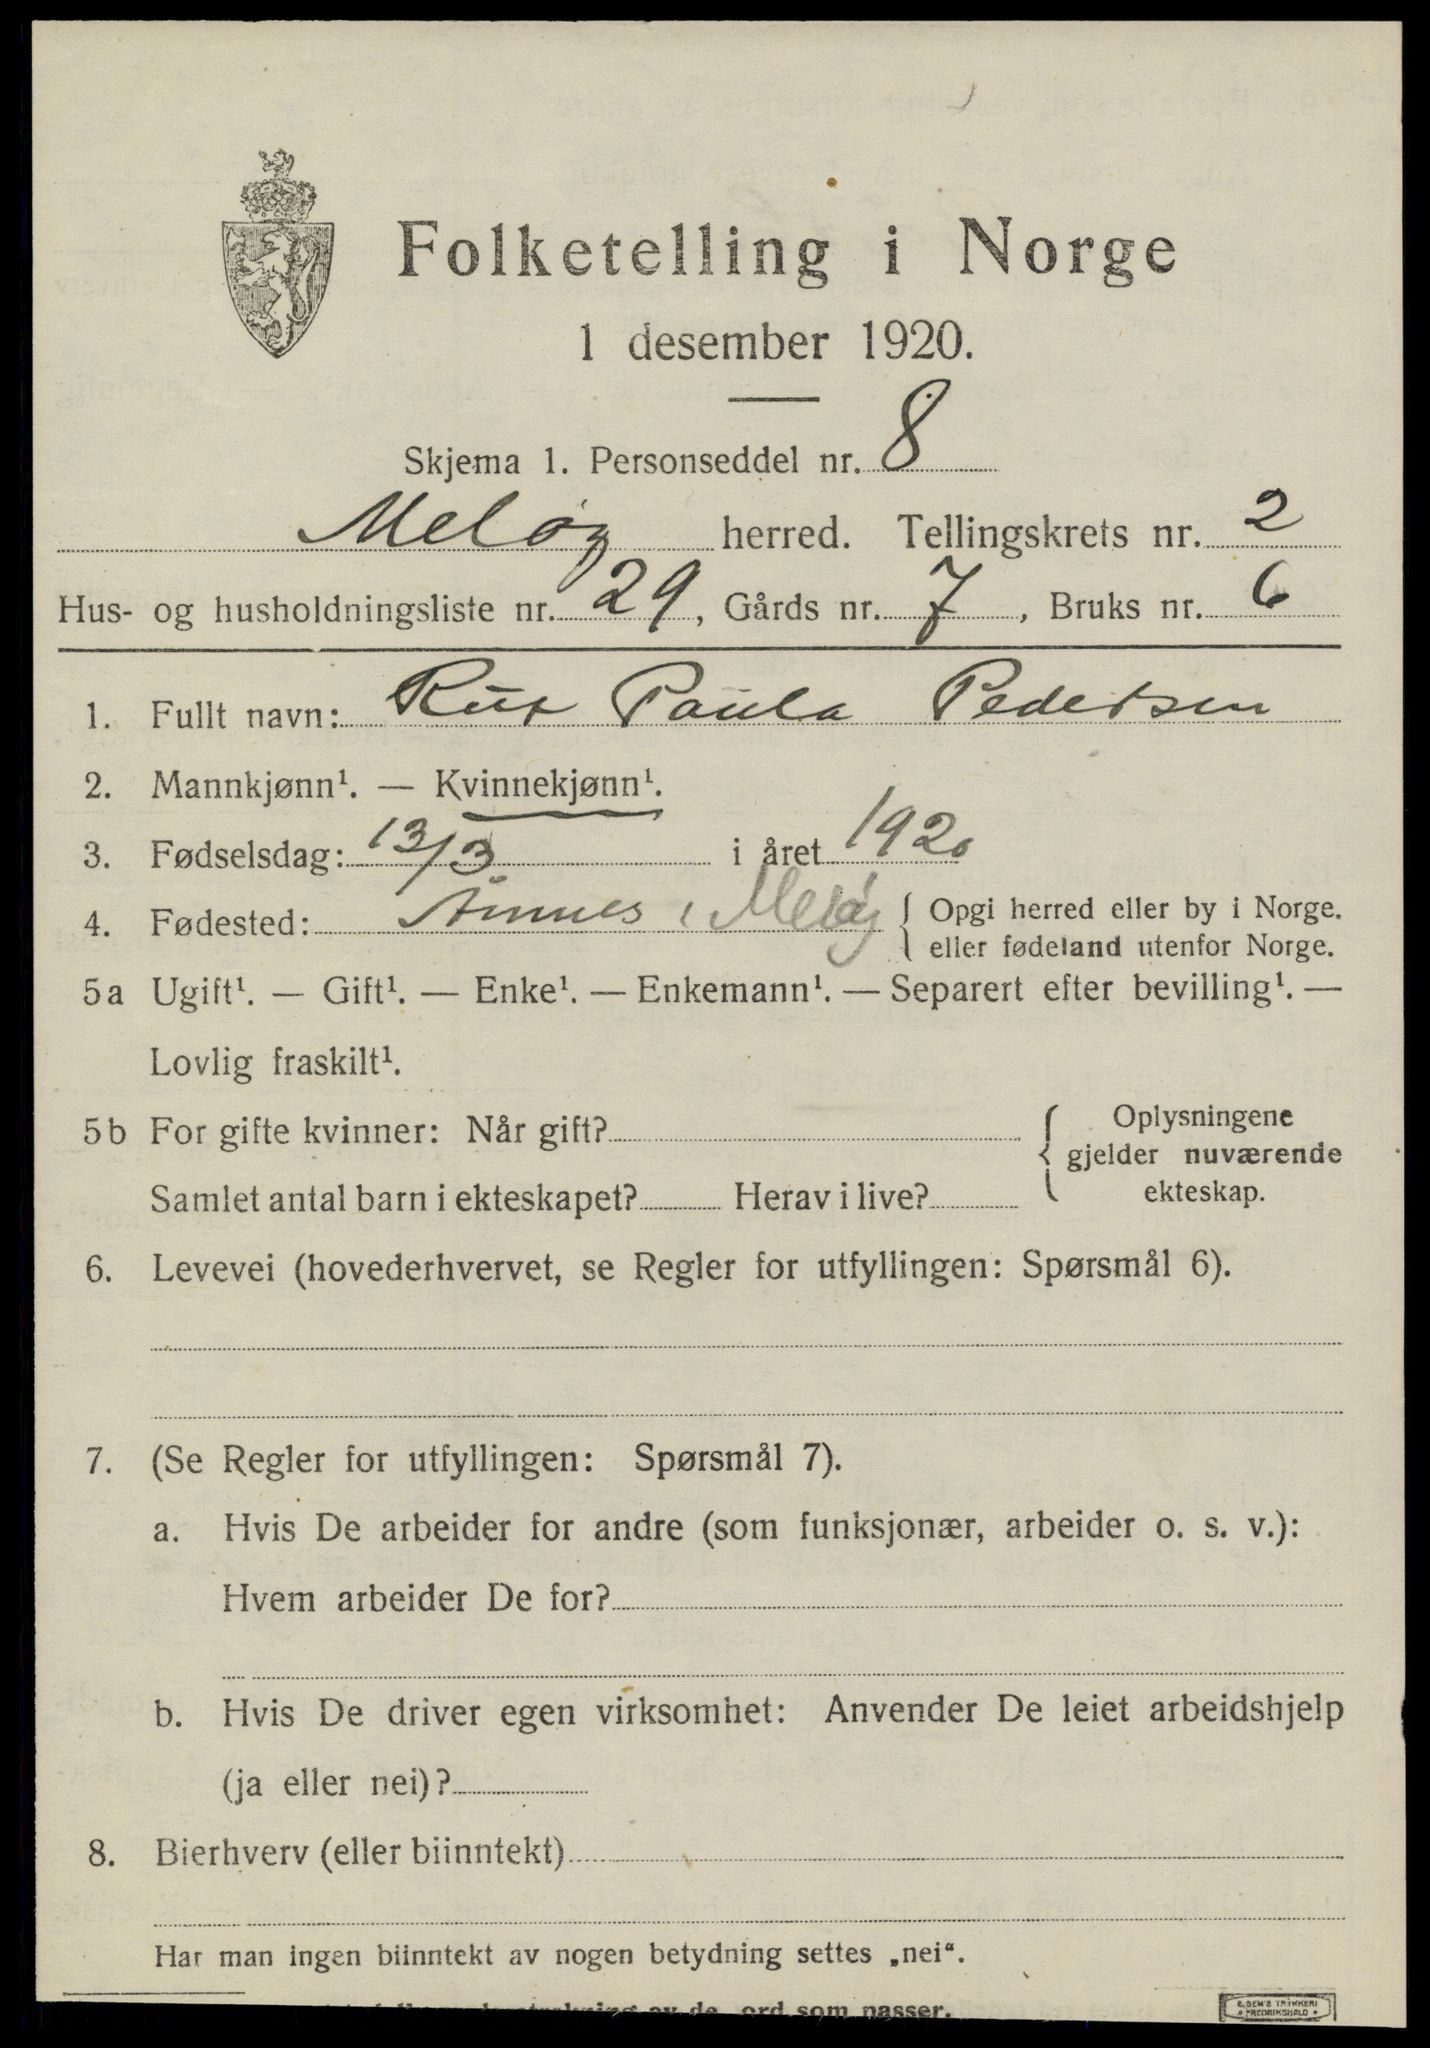 Folketelling i Norge
1 desember 1920.
Skjema 1. Personseddel nr. 8
Meløy herred. Tellingskrets nr. 2
Hus- og husholdningsliste nr. 29, Gårds nr. 7, Bruks nr. 6
1. Fullt navn: Rut Paula Pedersen
2. Mannkjønn¹. — Kvinnekjønn¹.
3. Fødselsdag: 13/3 i året 1920
4. Fødested: Ånnes i Meløy { Opgi herred eller by i Norge.
eller fødeland utenfor Norge.
5a Ugift¹. — Gift¹. — Enke¹. — Enkemann¹. — Separert efter bevilling¹. —
Lovlig fraskilt¹.
5b For gifte kvinner: Når gift? { Oplysningene
gjelder nuværende
ekteskap.
Samlet antal barn i ekteskapet? Herav i live?
6. Levevei (hovederhvervet, se Regler for utfyllingen: Spørsmål 6).
7. (Se Regler for utfyllingen: Spørsmål 7).
a. Hvis De arbeider for andre (som funksjonær, arbeider o. s. v.):
Hvem arbeider De for?
b. Hvis De driver egen virksomhet: Anvender De leiet arbeidshjelp
(ja eller nei)?
8. Bierhverv (eller biinntekt)
Har man ingen biinntekt av nogen betydning settes „nei“.
av de ord som passer.
FREDRIKSHALD